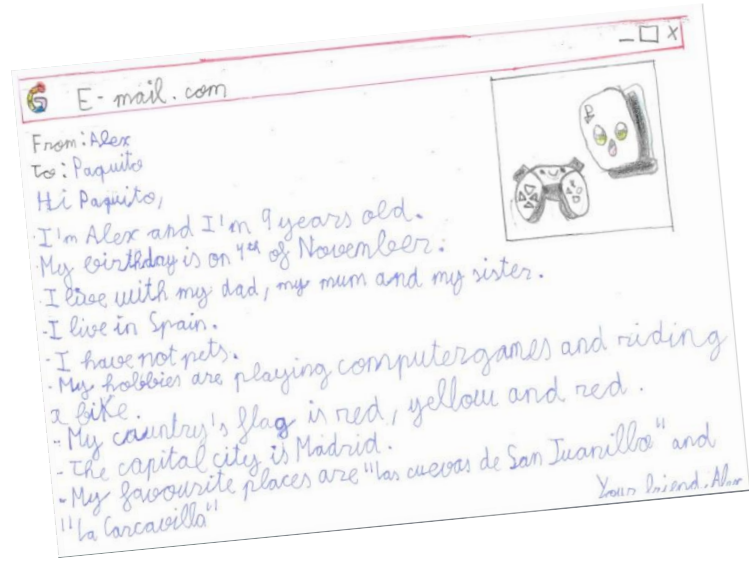 E-mail.com
From: Alex
To: Paquito
Hi Paquito,
-I'm Alex and I'm 9 years old.
-My birthday is on 4th of November.
-I live with my dad, my mum and my sister.
-I live in Spain.
-I have not pets.
-My hobbies are playing computergames and riding
a bike.
-My country's flag is red, yellow and red.
-The capital city is Madrid.
-My favourite places are "las cuevas de San Juanillo" and
"La Carcavilla"
Your friend, Alex